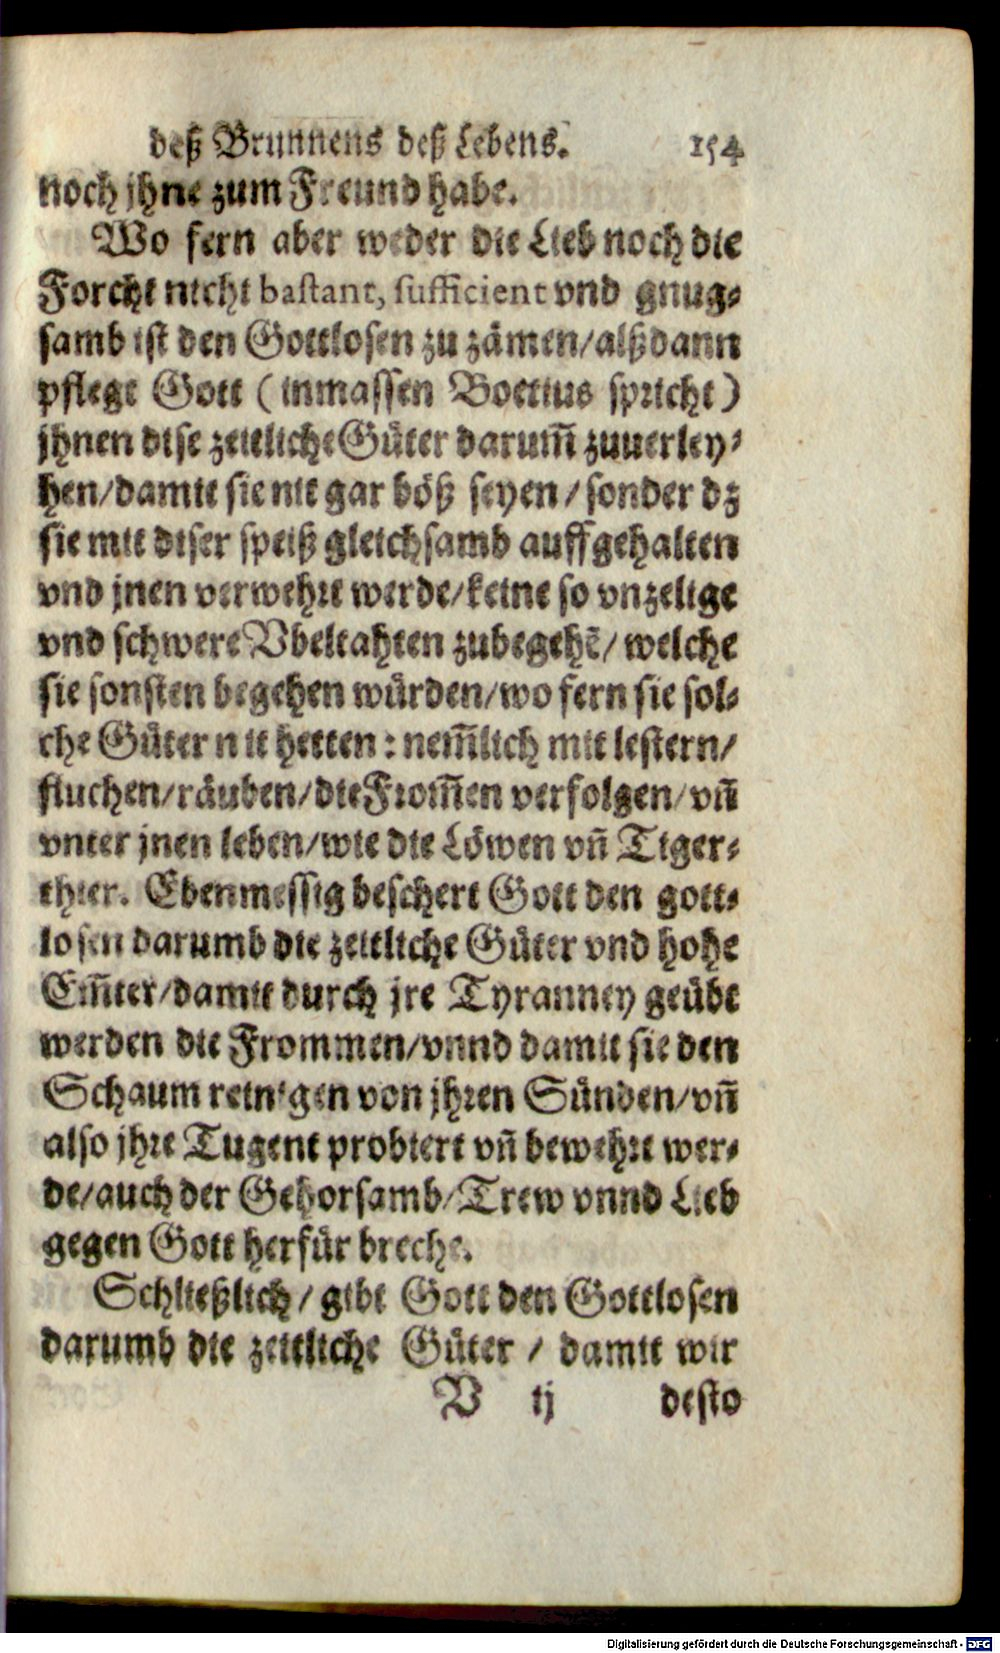 deß Brunnens deß Lebens. 154
noch jhne zum Freund habe.
Wo fern aber weder die Lieb noch die
Forcht nicht bastant, sufficient vnd gnug-
samb ist den Gottlosen zu zämen/alßdann
pflegt Gott (inmassen Boetius spricht)
jhnen dise zeitliche Güter darum̃ zuuerley-
hen/damit sie nit gar böß seyen/sonder dz
sie mit diser speiß gleichsamb auffgehalten
vnd jnen verwehrt werde/keine so vnzelige
vnd schwere Vbeltahten zubegehẽ/welche
sie sonsten begehen würden/wo fern sie sol-
che Güter nit hetten: nem̃lich mit lestern/
fluchen/räuben/die From̃en verfolgen/vñ
vnter jnen leben/wie die Löwen vñ Tiger-
thier. Ebenmessig beschert Gott den gott-
losen darumb die zeitliche Güter vnd hohe
Em̃ter/damit durch jre Tyranney geübt
werden die Frommen/vnnd damit sie den
Schaum reinigen von jhren Sünden/vñ
also jhre Tugent probiert vñ bewehrt wer-
de/auch der Gehorsamb/Trew vnnd Lieb
gegen Gott herfür breche.
Schließlich/gibt Gott den Gottlosen
darumb die zeitliche Güter/damit wir
V ij desto
Digitalisierung gefördert durch die Deutsche Forschungsgemeinschaft - DFG